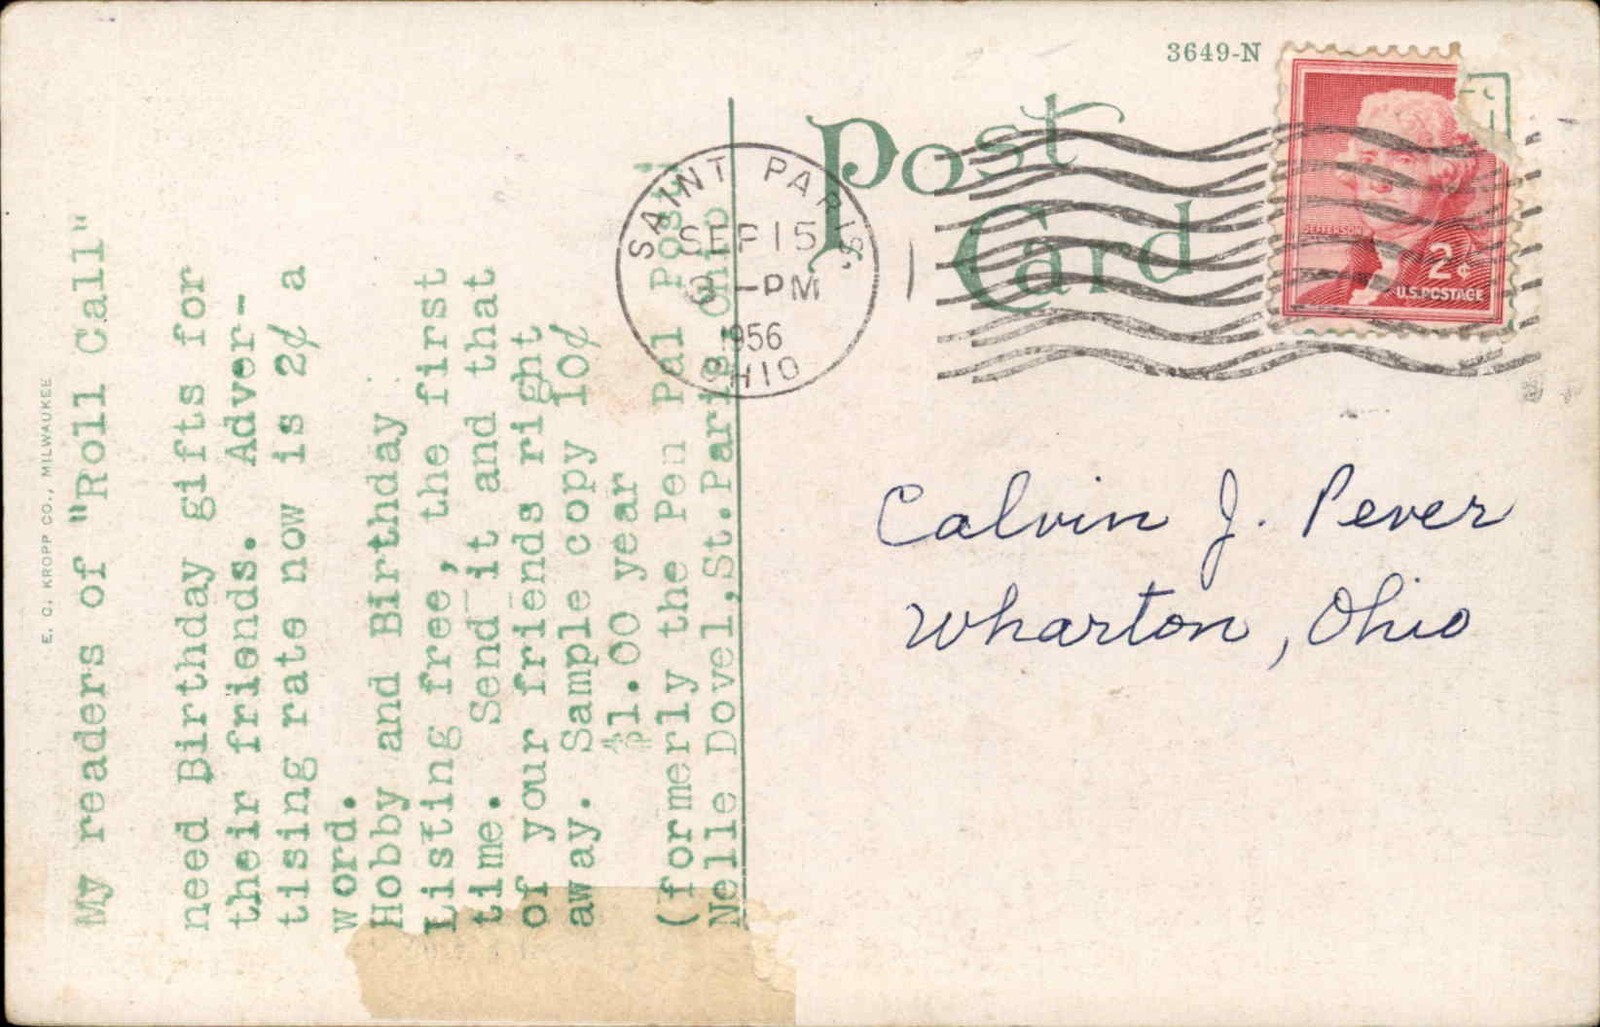 E. C. KROPP CO., MILWAUKEE
My readers of "Roll Call"
need Birthday gifts for
their friends. Adver-
tising rate now is 2¢ a
word.
Hobby and Birthday
Listing free, the first
time. Send it and that
of your friends right
away. Sample copy 10¢
$1.00 year
(formerly the Pen Pal Post)
Nelle Dovel, St. Paris, Ohio
3649-N
Post
Card
SAINT PARIS,
SEP 15
-PM
1956
OHIO
1
JEFFERSON
2¢
U.S. POSTAGE
Calvin J. Pever
Wharton, Ohio